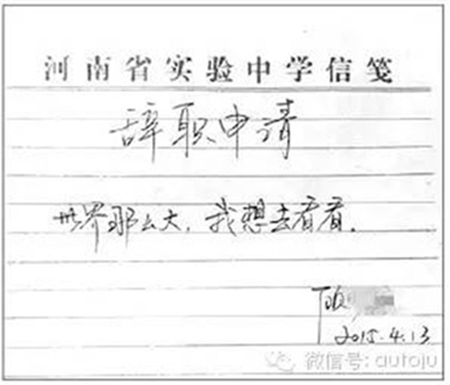 河南省实验中学信笺
辞职申请
世界那么大,我想去看看。
2015.4.13
微信号: autoju